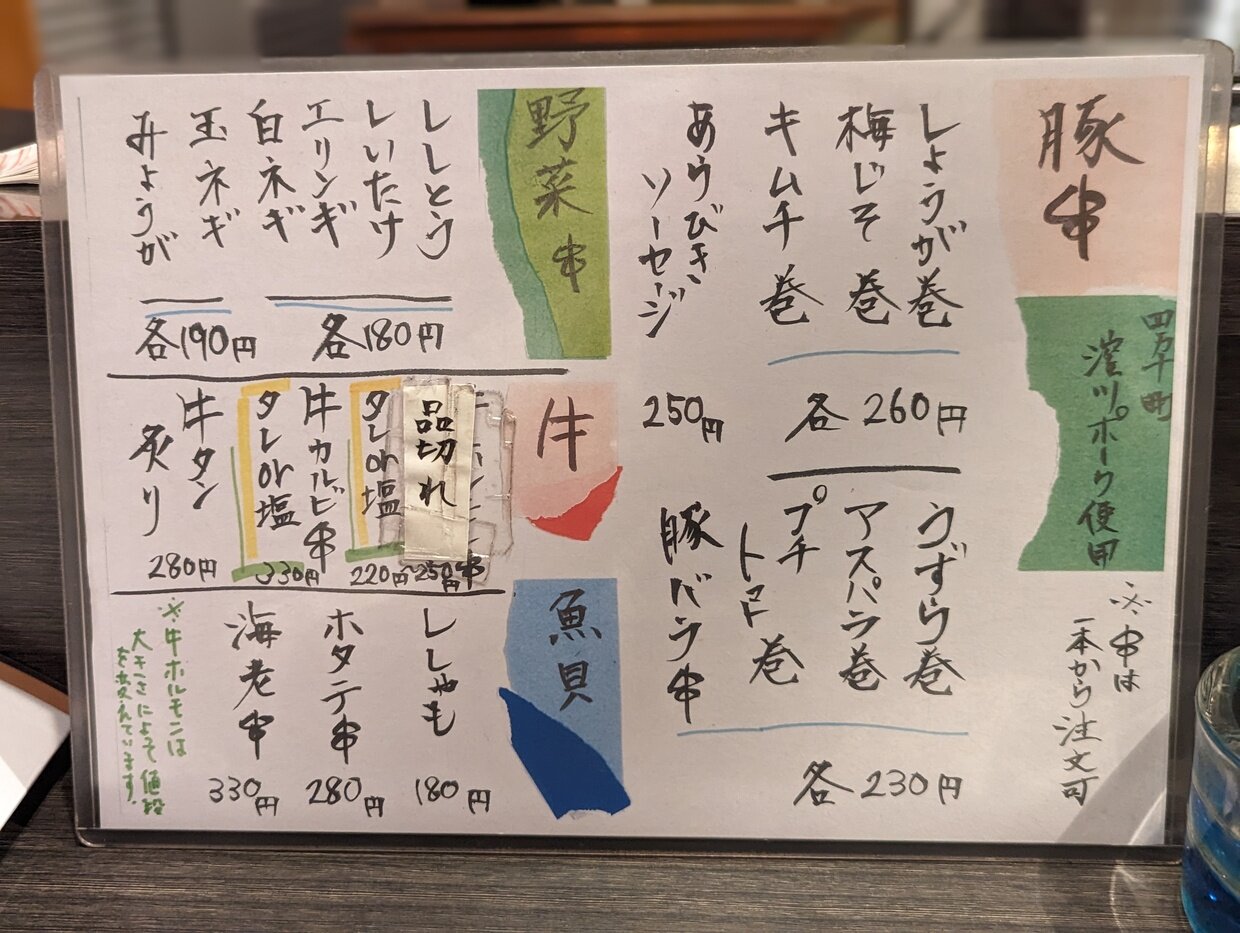 豚串
四万十町
窪川ポーク使用
※串は
一本から注文可
しょうが巻
梅じそ巻
キムチ巻
各260円
あらびき
ソーセージ
250円
うずら巻
アスパラ巻
プチ
トマト巻
豚バラ串
各230円
野菜串
ししとう
しいたけ
エリンギ
白ネギ
各180円
玉ネギ
みょうが
各190円
牛
品切れ
250円
タレor塩
220円
牛カルビ串
タレor塩
330円
牛タン
炙り
280円
魚貝
ししゃも
180円
ホタテ串
280円
海老串
330円
※牛ホルモンは
大きさによって値段
を変えています。